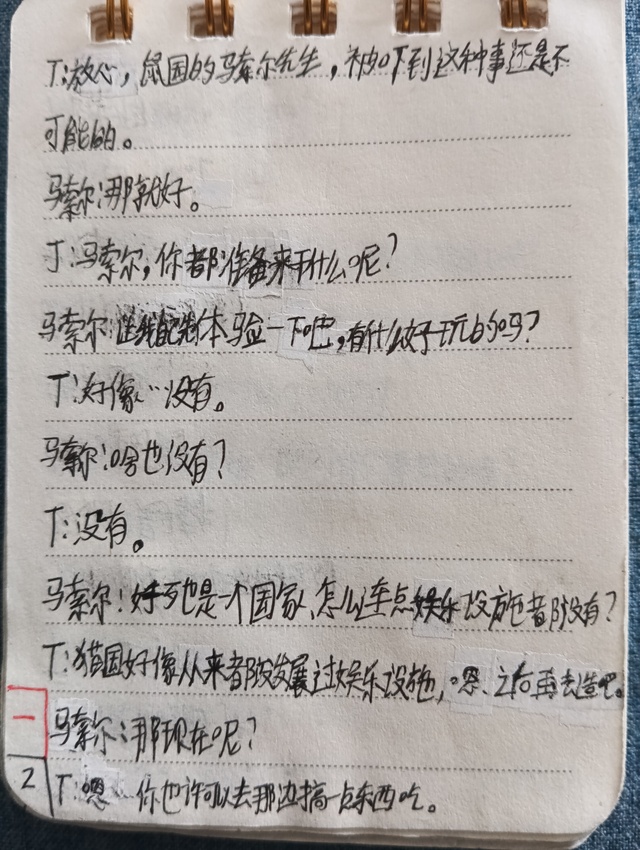 T:放心,鼠国的马索尔先生,被吓到这种事还是不
可能的。
马索尔:那就好。
T:马索尔,你都准备来干什么呢?
马索尔:体验一下吧,有什么好玩的吗?
T:好像…没有。
马索尔:啥也没有?
T:没有。
马索尔:好歹也是一个国家、怎么连点娱乐设施都没有?
T:猫国好像从来都没发展过娱乐设施,嗯、之后再去造吧。
马索尔:那现在呢?
T:嗯…你也许可以去那边搞一点东西吃。
一
2